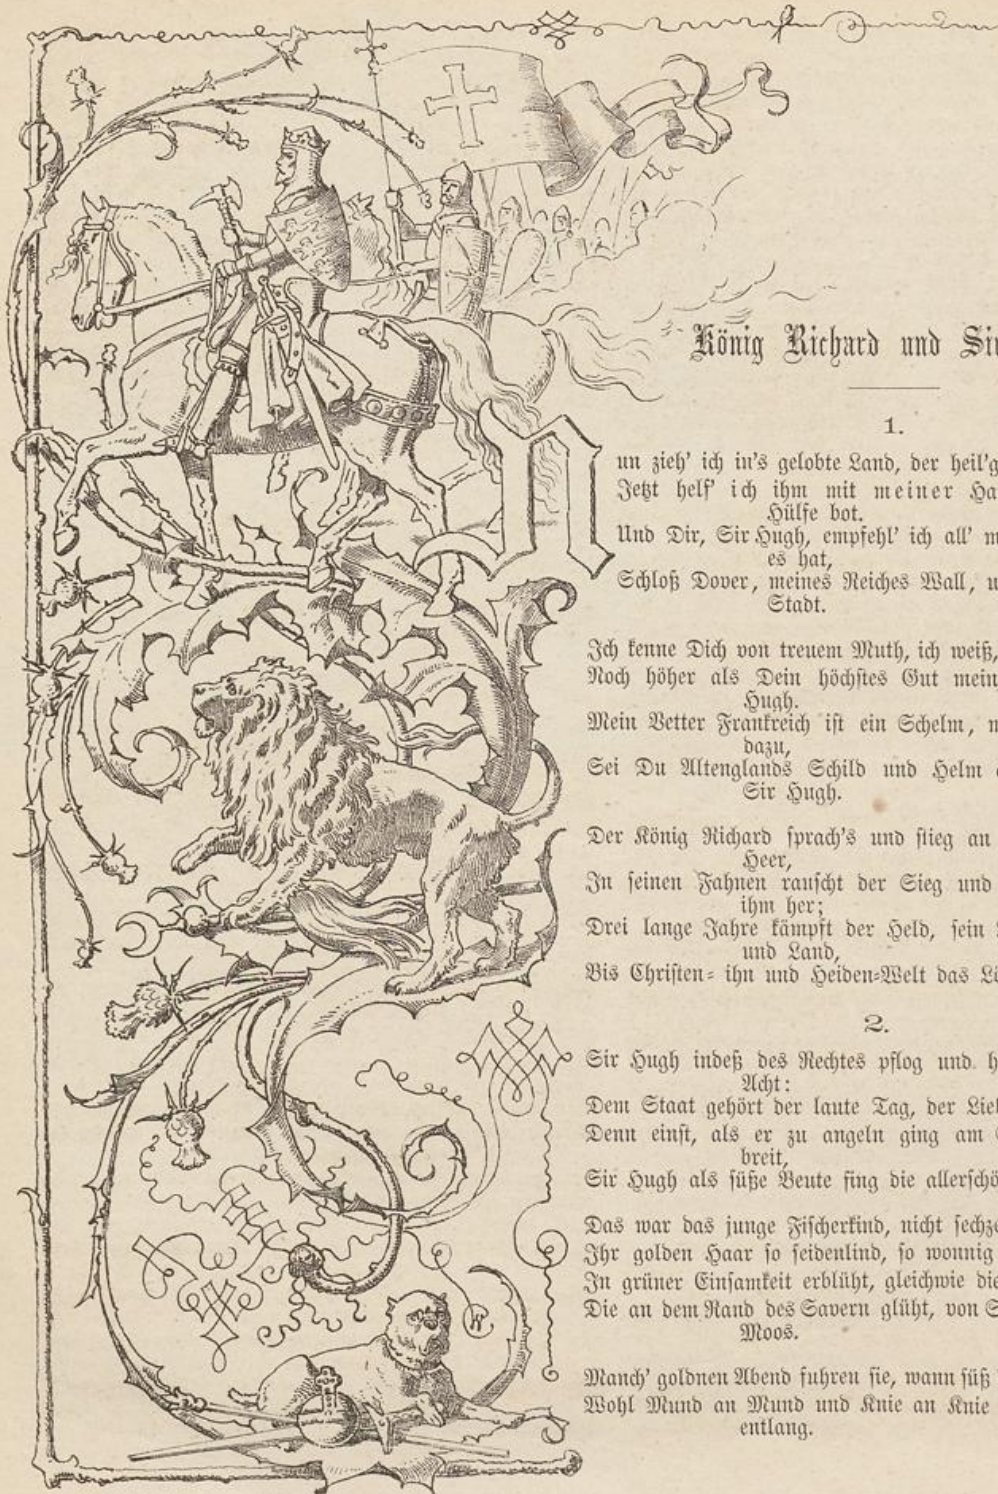 König Richard und Sir
1.
Nun zieh' ich in's gelobte Land, der heil'g
Jetzt helf' ich ihm mit meiner Ha
Hülfe bot.
Und Dir, Sir Hugh, empfehl' ich all' m
es hat,
Schloß Dover, meines Reiches Wall, u
Stadt.
Ich kenne Dich von treuem Muth, ich weiß,
Noch höher als Dein höchstes Gut mein
Hugh.
Mein Vetter Frankreich ist ein Schelm, m
dazu,
Sei Du Altenglands Schild und Helm
Sir Hugh.
Der König Richard sprach's und stieg an
Heer,
In seinen Fahnen rauscht der Sieg und
ihm her;
Drei lange Jahre kämpft der Held, sein
und Land,
Bis Christen- ihn und Heiden-Welt das Lö
2.
Sir Hugh indeß des Rechtes pflog und h
Acht:
Dem Staat gehört der laute Tag, der Lie
Denn einst, als er zu angeln ging am
breit,
Sir Hugh als süße Beute fing die allerschö
Das war das junge Fischerkind, nicht sechze
Ihr golden Haar so seidenlind, so wonnig
In grüner Einsamkeit erblüht, gleichwie die
Die an dem Rand des Savern glüht, von S
Moos.
Manch' goldnen Abend fuhren sie, wann süß
Wohl Mund an Mund und Knie an Knie
entlang.